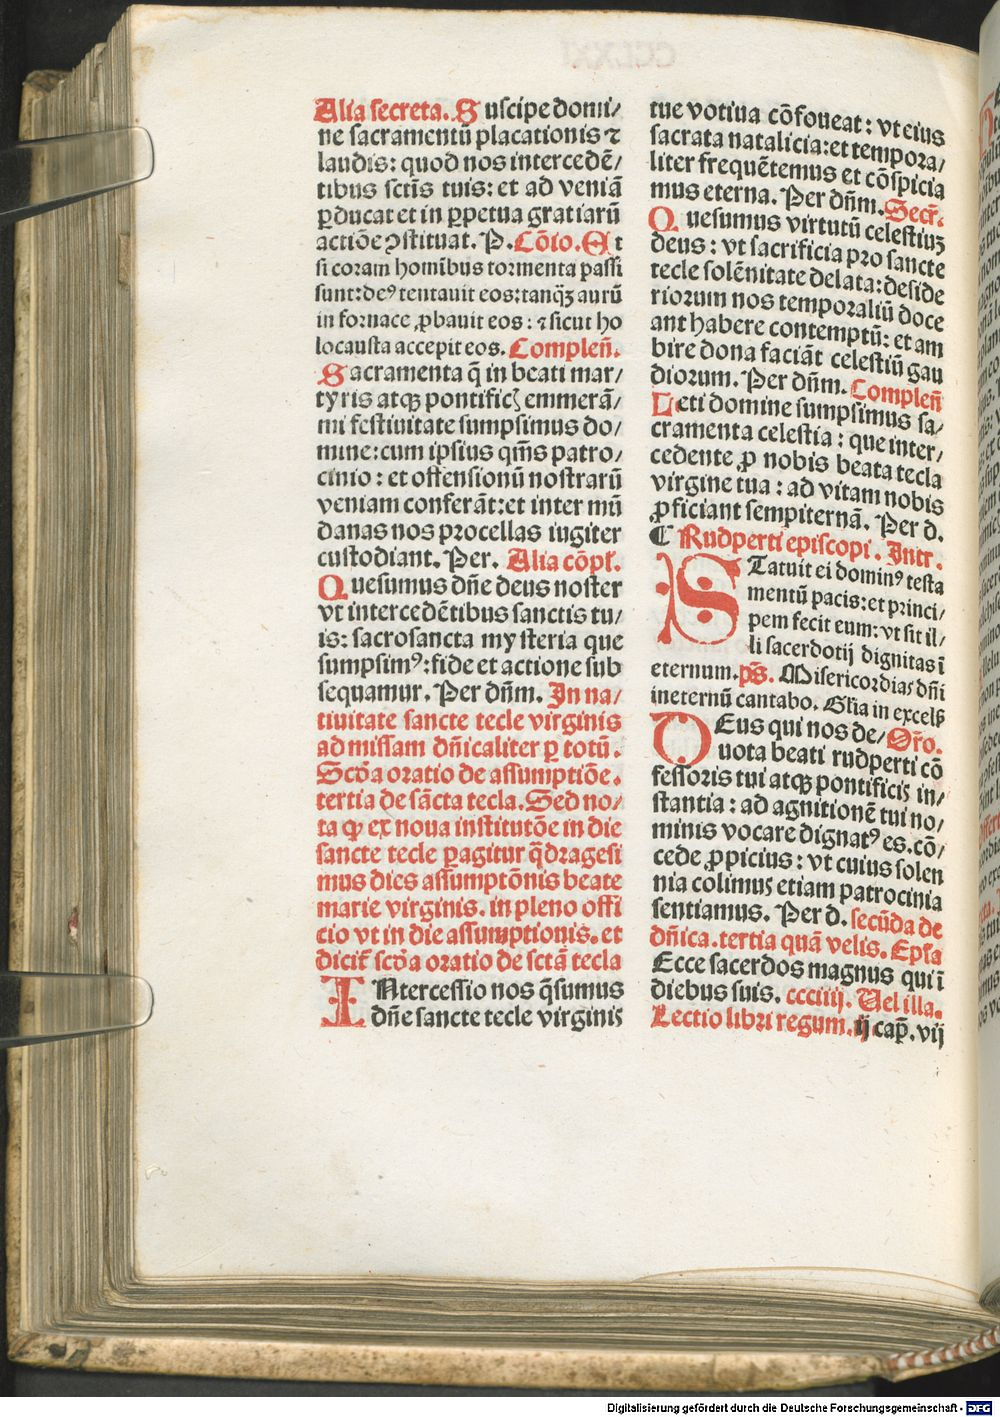 Alia secreta. Suscipe domi/
ne sacramentū placationis ⁊
laudis: quod nos intercedē/
tibus sctīs tuis: et ad veniā
ꝑducat et in ꝑpetua gratiarū
actiōe ꝯstituat. P. Cōio. Et
si coram homībus tormenta passi
sunt: deꝰ tentauit eos: tanqȝ aurū
in fornace ꝓbauit eos: ⁊ sicut ho
locausta accepit eos. Compleñ.
Sacramenta q̄ in beati mar/
tyris atqꝫ pontificꝭ emmerā/
mi festiuitate sumpsimus do/
mine: cum ipsius qm̄s patro/
cinio: et offensionū nostrarū
veniam conferāt: et inter mū
danas nos procellas iugiter
custodiant. Per. Alia cōpl.
Quesumus dñe deus noster
vt intercedētibus sanctis tu/
is: sacrosancta mysteria que
sumpsimꝰ: fide et actione sub
sequamur. Per dñm. In na/
tiuitate sancte tecle virginis
ad missam dñicaliter ꝑ totū.
Scd̄a oratio de assumptiōe.
tertia de sācta tecla. Sed no/
ta ꝙ ex noua institutōe in die
sancte tecle ꝑagitur q̄dragesi
mus dies assumptōnis beate
marie virginis. in pleno offi
cio vt in die assumptionis. et
dicit̄ scd̄a oratio de sctā tecla
INtercessio nos q̄sumus
dñe sancte tecle virginis
tue votiua cōfoueat: vt eius
sacrata natalicia: et tempora/
liter frequētemus et cōspicia
mus eterna. Per dñm. Secr̄.
Quesumus virtutū celestiuꝫ
deus: vt sacrificia pro sancte
tecle solēnitate delata: deside
riorum nos temporaliū doce
ant habere contemptū: et am
bire dona faciāt celestiū gau
diorum. Per dñm. Compleñ
Leti domine sumpsimus sa/
cramenta celestia: que inter/
cedente ꝓ nobis beata tecla
virgine tua: ad vitam nobis
ꝓficiant sempiternā. Per d.
¶ Rudperti episcopi. Intr.
STatuit ei dominꝰ testa
mentū pacis: et princi/
pem fecit eum: vt sit il/
li sacerdotij dignitas ī
eternum. ps̄. Misericordias dñi
ineternū cantabo. Gl̄ia in excelß
DEus qui nos de/ Or̄o.
uota beati rudperti cō
fessoris tui atqꝫ pontificis in/
stantia: ad agnitionē tui no/
minis vocare dignatꝰ es. cō/
cede ꝓpicius: vt cuius solen
nia colimus etiam patrocinia
sentiamus. Per d. secūda de
dñica. tertia quā velis. Epl̄a
Ecce sacerdos magnus qui ī
diebus suis. ccciiij. Uel illa.
Lectio libri regum. ij cap̄. vij
Digitalisierung gefördert durch die Deutsche Forschungsgemeinschaft - DFG